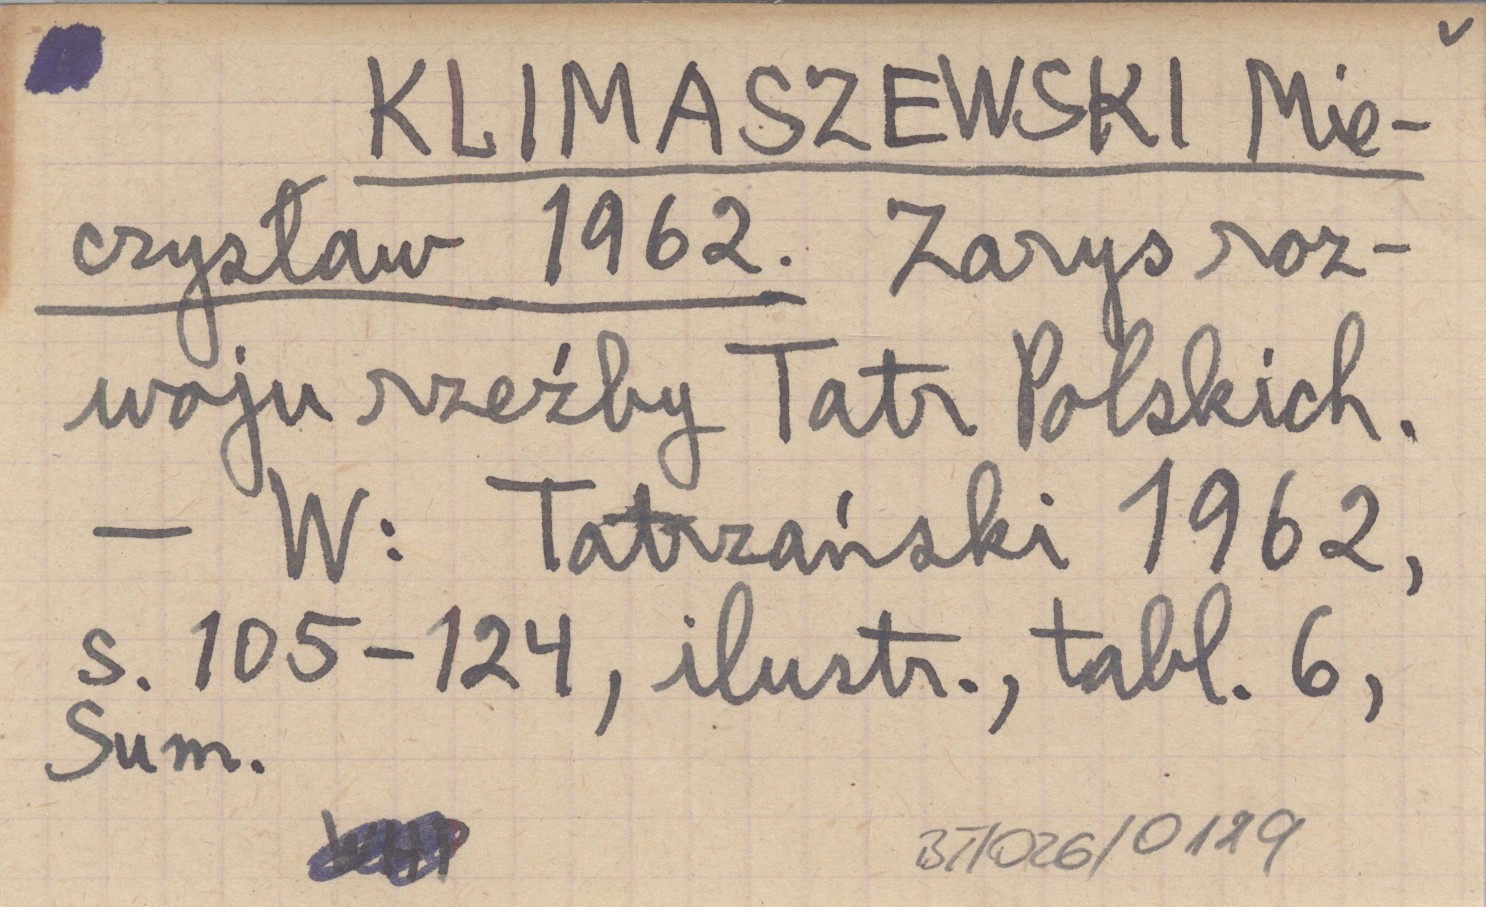 KLIMASZEWSKI Mie-
czysław 1962. Zarys roz-
woju rzeźby Tatr Polskich.
— W: Tatrzański 1962,
s. 105-124, ilustr., tabl. 6,
Sum.
BT/026/0129